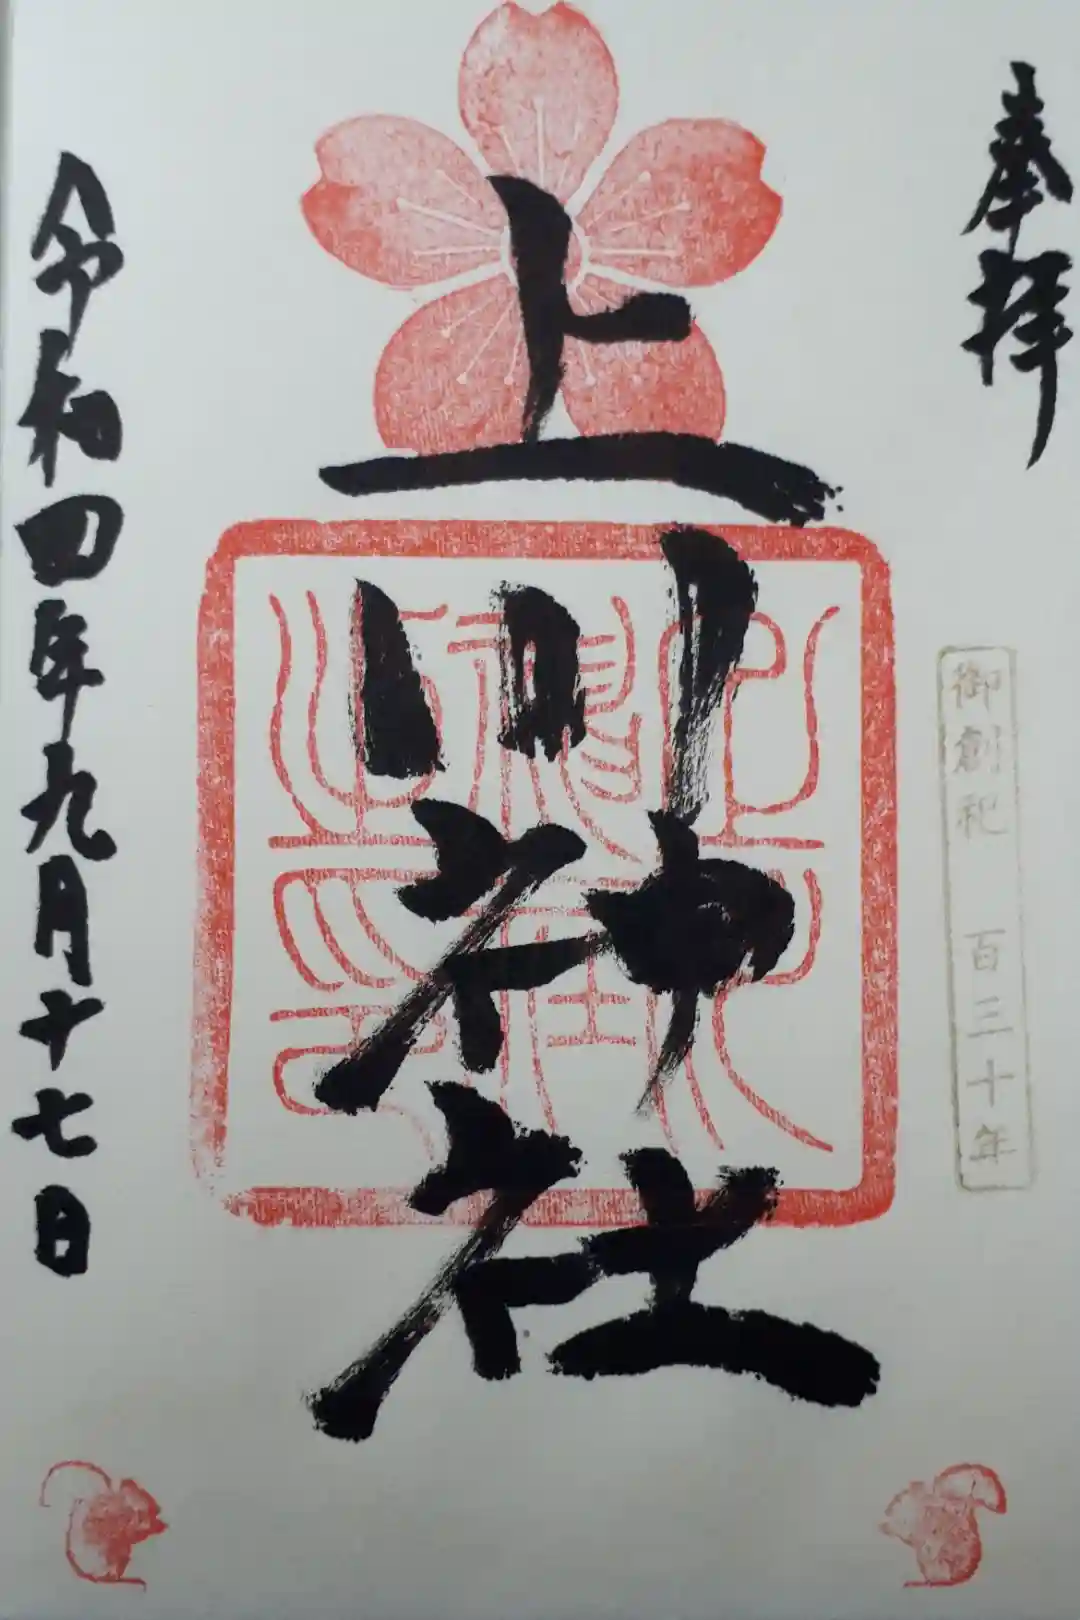 奉拝
御創祀 百三十年
上川神社
令和四年九月十七日